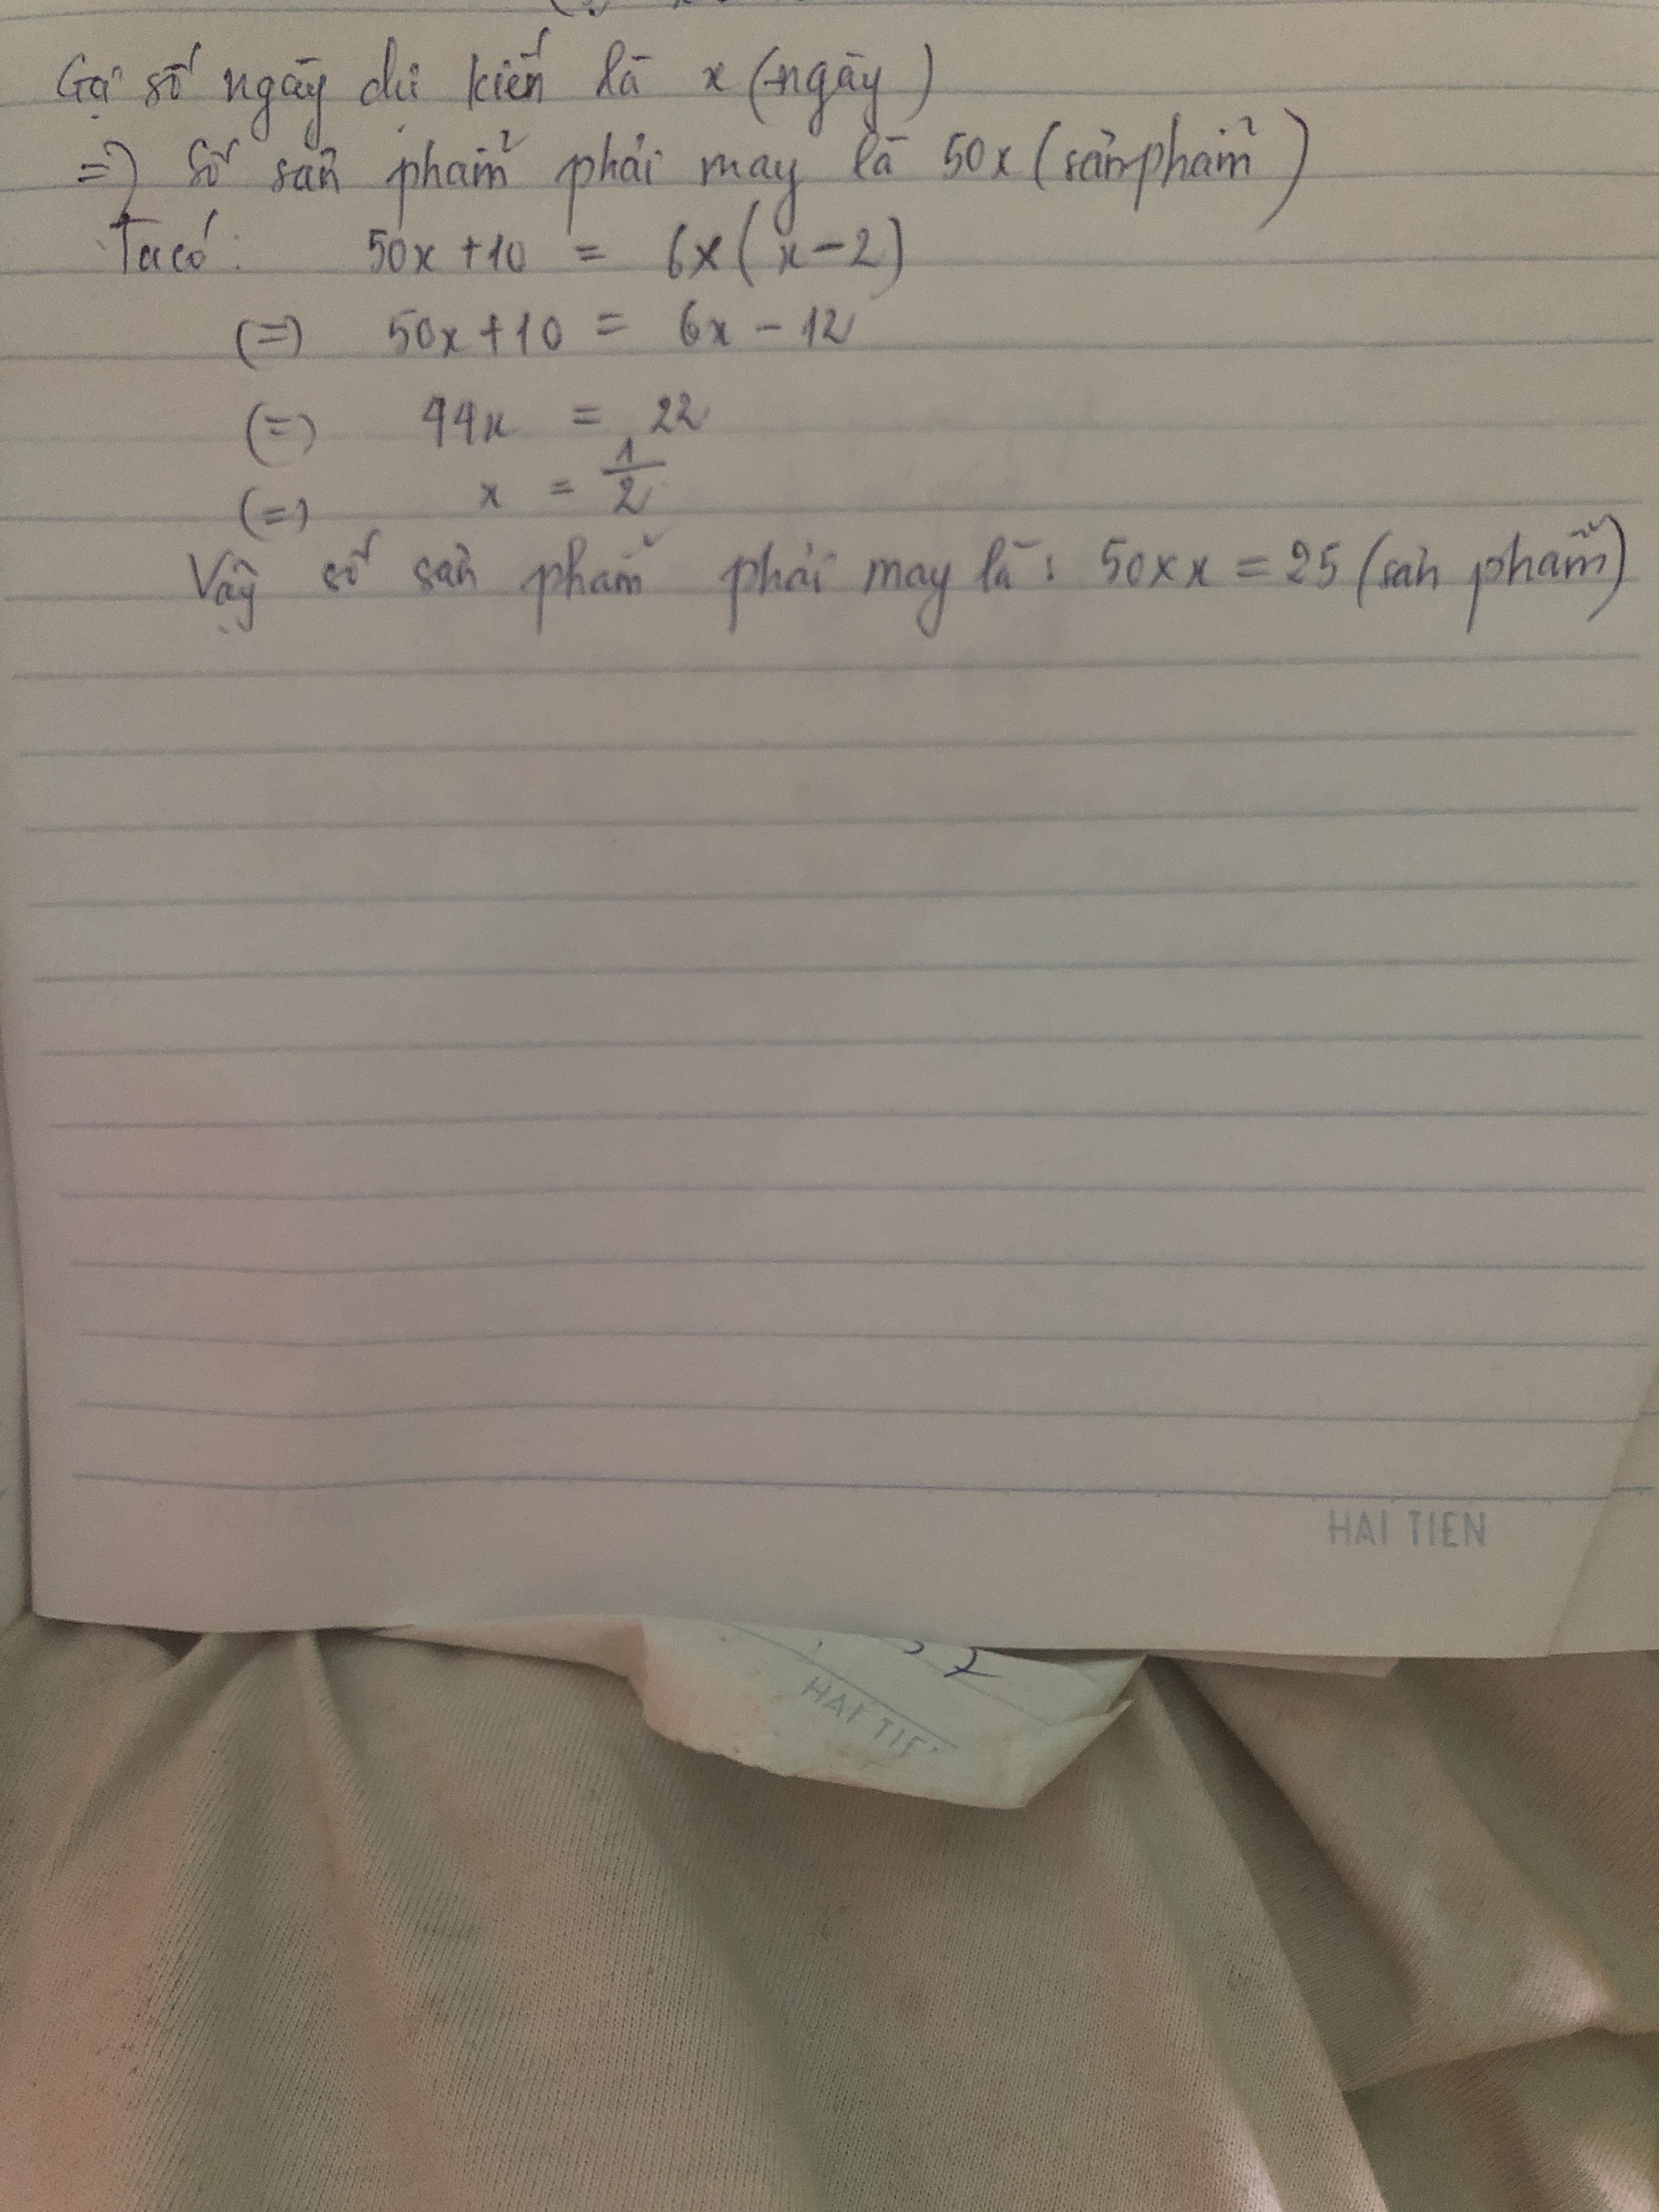 Gọi số ngày dự kiến là x (ngày)
=> Số sản phẩm phải may là 50x (sản phẩm)
Ta có: 50x + 10 = 6x(x - 2)
(=) 50x + 10 = 6x - 12
(=) 44x = 22
(=) x = 1/2
Vậy số sản phẩm phải may là: 50xx = 25 (sản phẩm)
HAI TIEN
HAI TIE